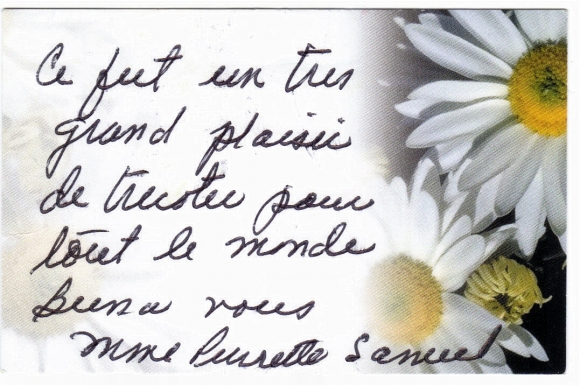 Ce fut un tres
grand plaisir
de tricoter pour
tout le monde
Bien a vous
Mme Pierrette Samuel